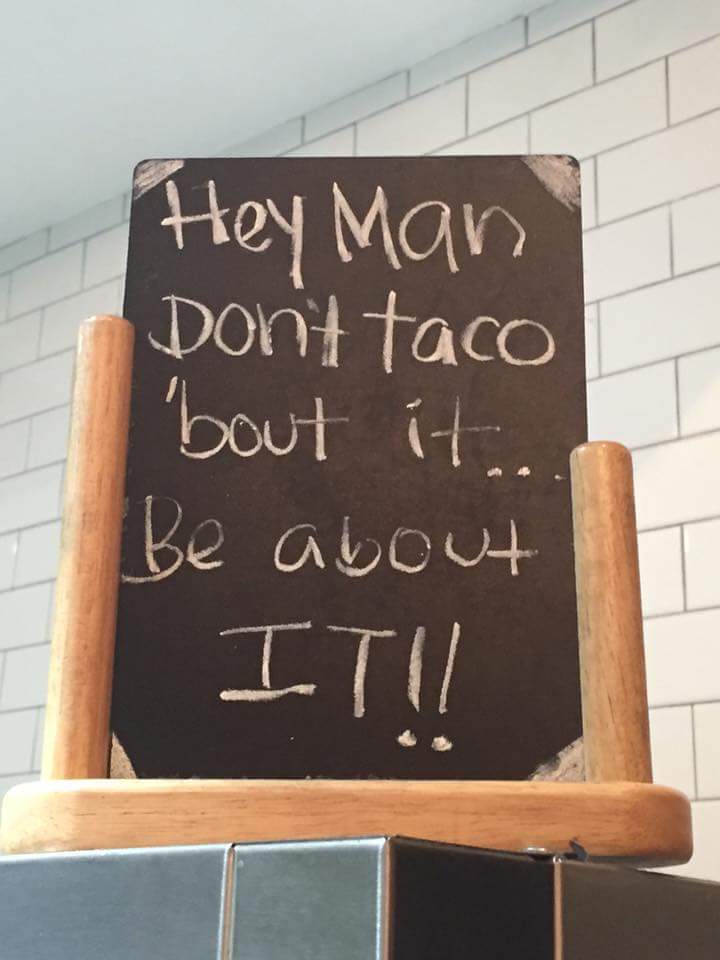 Hey Man
Don't taco
'bout it...
Be about
IT!!